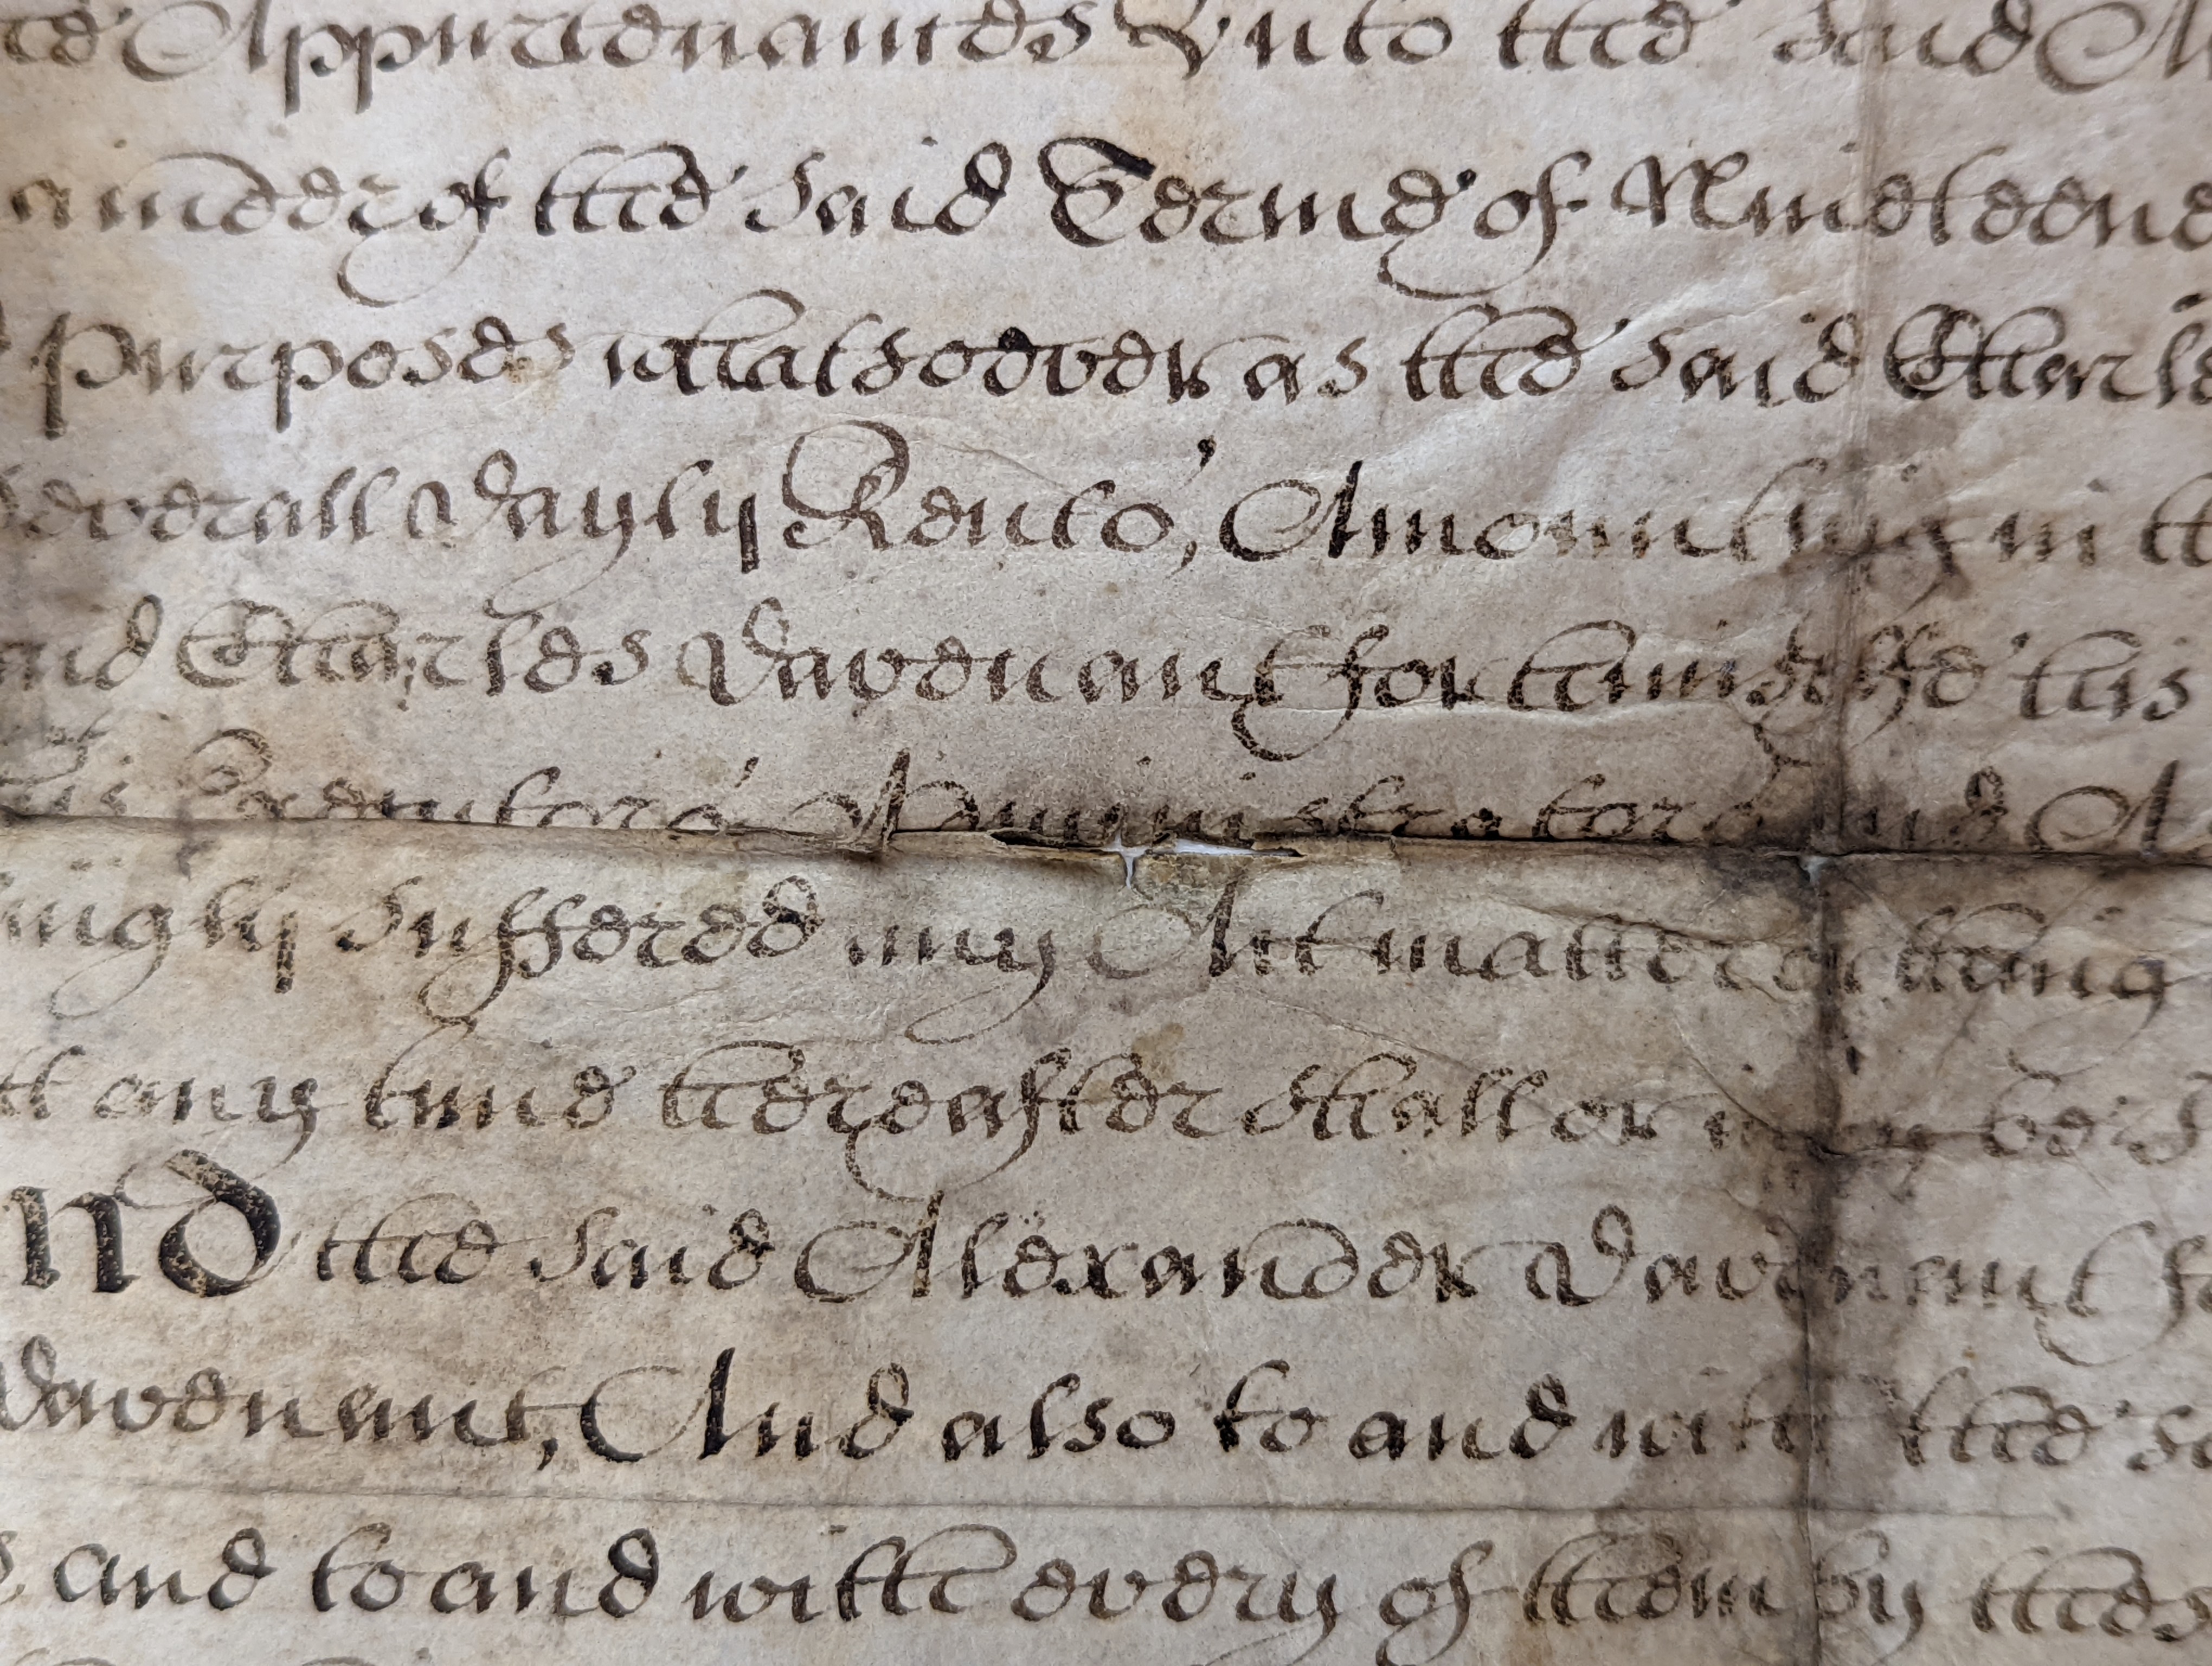 Appurtenances Unto the said
of the said Terme of Nineteene
purposes whatsoever as the said Charles
severall dayly Rents, Amounting in
said Charles Davenant for himselfe his
Executors Administrators and
suffered any Act matter or thing
any time hereafter shall or may be
And the said Alexander Davenant
Davenant, And also to and with the
and to and with every of them by